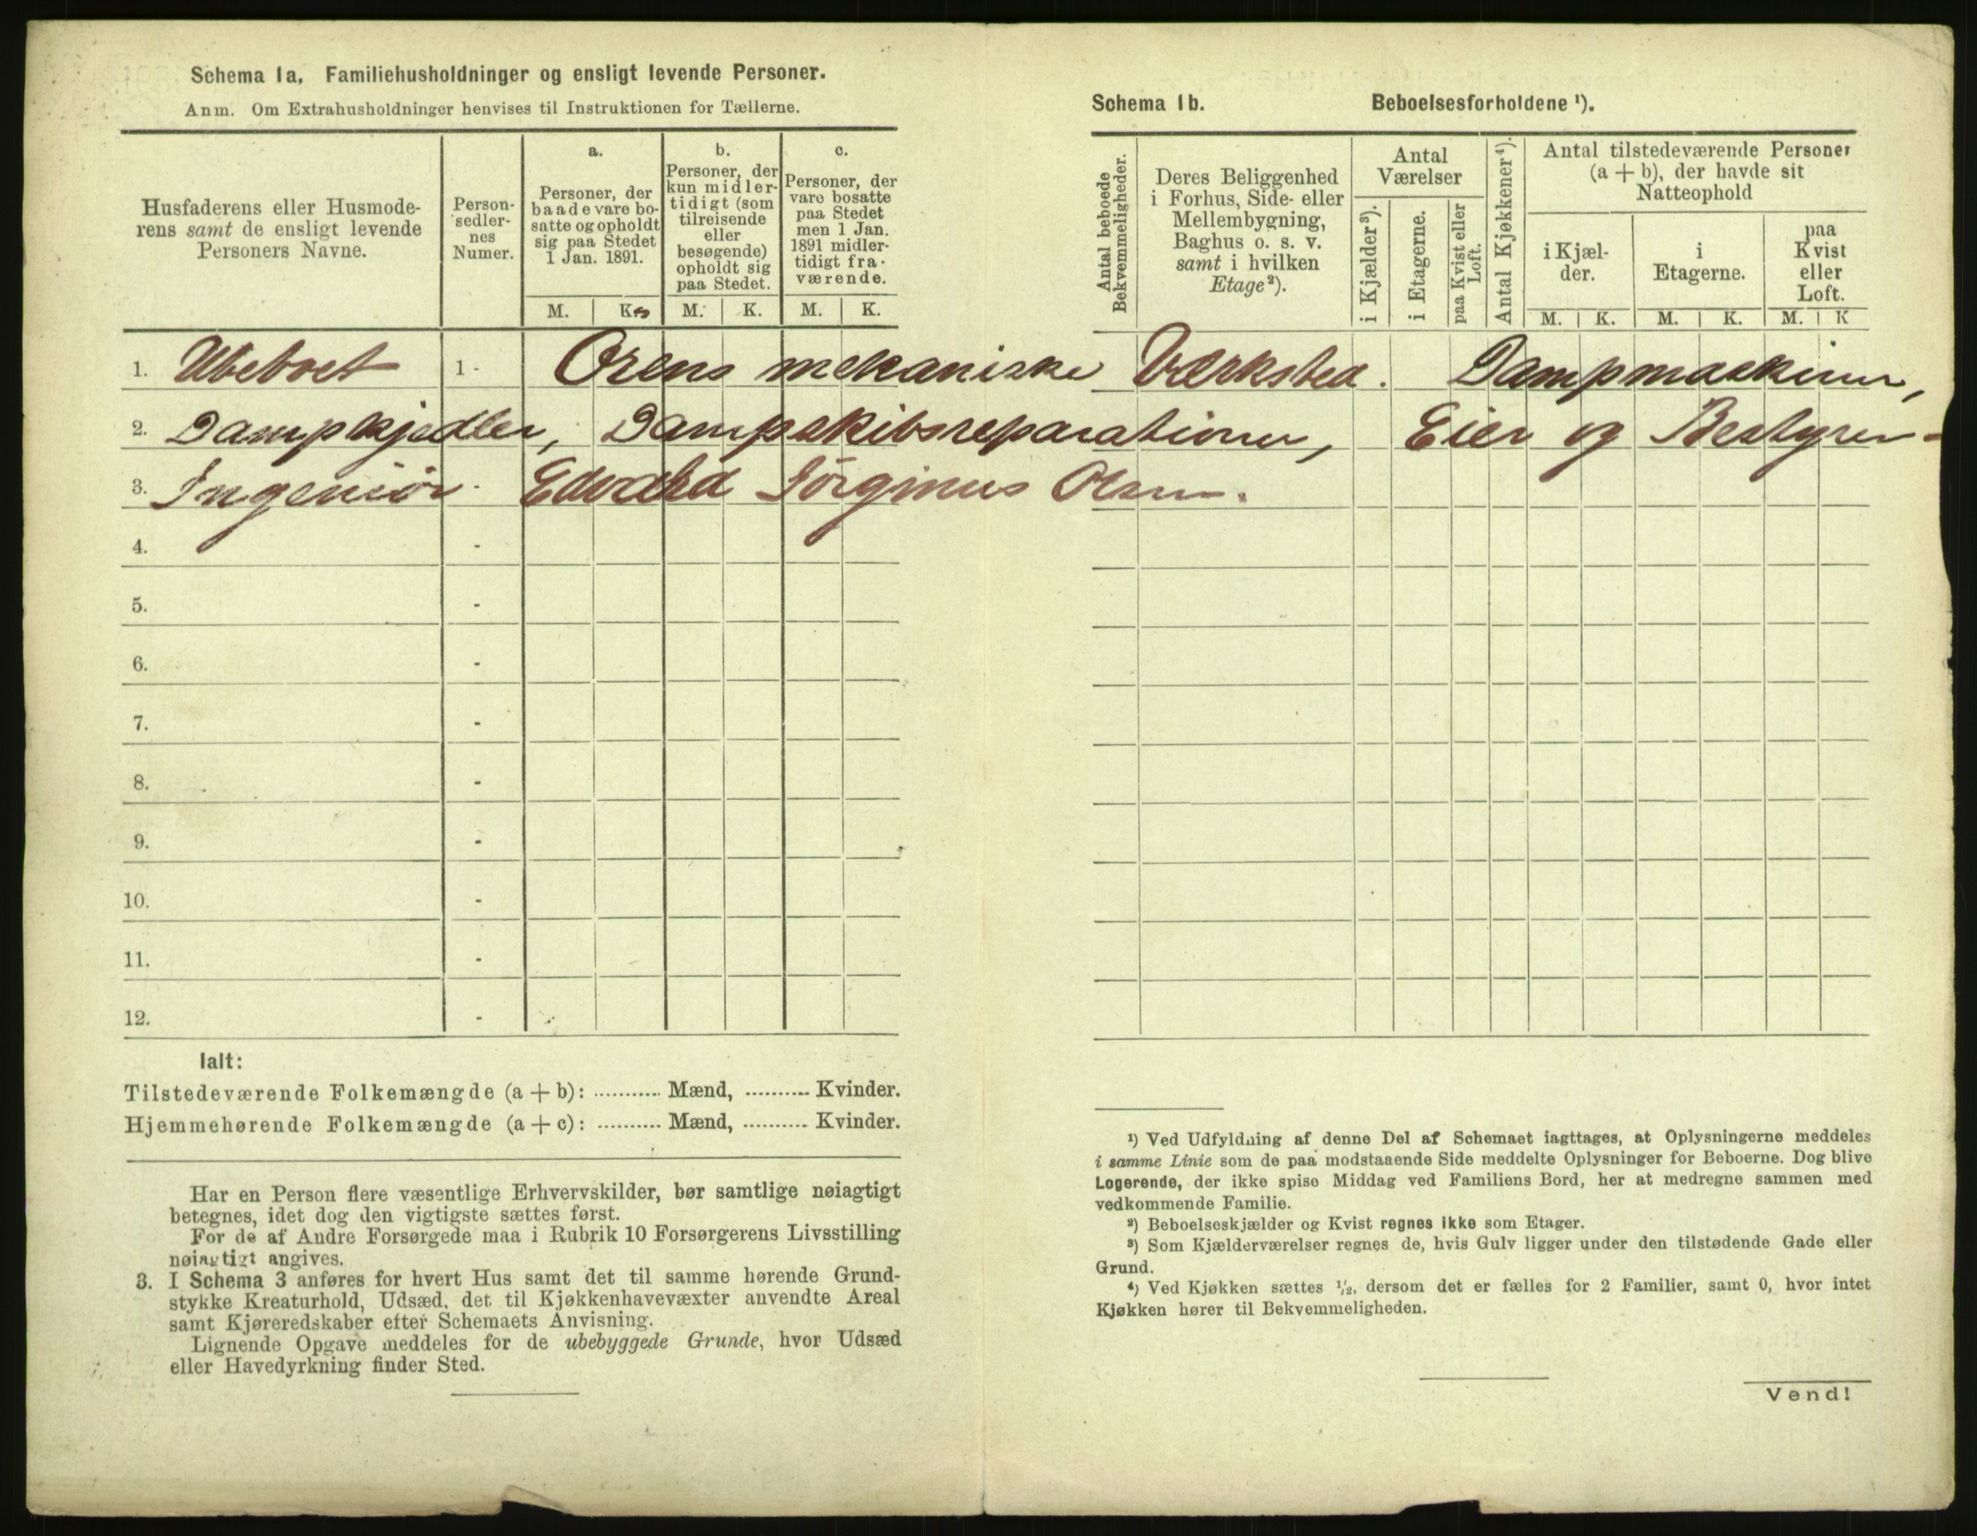 Schema 1a. Familiehusholdninger og ensligt levende Personer.
Anm. Om Extrahusholdninger henvises til Instruktionen for Tællerne.
Husfaderens eller Husmode-
rens samt de ensligt levende
Personers Navne.
Person-
sedler-
nes
Numer.
a.
Personer, der
baade vare bo-
satte og opholdt
sig paa Stedet
1 Jan. 1891.
M. K.
b.
Personer, der
kun midler-
tidigt (som
tilreisende
eller
besøgende)
opholdt sig
paa Stedet.
M. K.
c.
Personer, der
vare bosatte
paa Stedet
men 1 Jan.
1891 midler-
tidigt fra-
værende.
M. K.
Schema 1b. Beboelsesforholdene ¹).
Antal beboede
Bekvemmeligheder.
Deres Beliggenhed
i Forhus, Side- eller
Mellembygning,
Baghus o. s. v.
samt i hvilken
Etage²).
Antal
Værelser
i Kjælder³).
i Etagerne.
paa Kvist eller
Loft.
Antal Kjøkkener⁴).
Antal tilstedeværende Personer
(a + b), der havde sit
Natteophold
i Kjæl-
der.
M. K.
i
Etagerne.
M. K.
paa
Kvist
eller
Loft.
M. K
1. Ubeboet 1 - Ørens mekaniske Værksted. Dampmaskiner,
2. Dampkjedler, Dampskibsreparationer, Eier og Bestyrer -
3. Ingeniør - Edvard Jørginus Olsen.
4. -
5. -
6. -
7. -
8. -
9. -
10. -
11. -
12. -
Ialt:
Tilstedeværende Folkemængde (a + b): .......... Mænd, .......... Kvinder.
Hjemmehørende Folkemængde (a + c): .......... Mænd, .......... Kvinder.
Har en Person flere væsentlige Erhvervskilder, bør samtlige nøiagtigt
betegnes, idet dog den vigtigste sættes først.
For de af Andre Forsørgede maa i Rubrik 10 Forsørgerens Livsstilling
nøiagtigt angives.
3. I Schema 3 anføres for hvert Hus samt det til samme hørende Grund-
stykke Kreaturhold, Udsæd, det til Kjøkkenhavevæxter anvendte Areal
samt Kjøreredskaber efter Schemaets Anvisning.
Lignende Opgave meddeles for de ubebyggede Grunde, hvor Udsæd
eller Havedyrkning finder Sted.
¹) Ved Udfyldning af denne Del af Schemaet iagttages, at Oplysningerne meddeles
i samme Linie som de paa modstaaende Side meddelte Oplysninger for Beboerne. Dog blive
Logerende, der ikke spise Middag ved Familiens Bord, her at medregne sammen med
vedkommende Familie.
²) Beboelseskjælder og Kvist regnes ikke som Etager.
³) Som Kjælderværelser regnes de, hvis Gulv ligger under den tilstødende Gade eller
Grund.
⁴) Ved Kjøkken sættes ½, dersom det er fælles for 2 Familier, samt 0, hvor intet
Kjøkken hører til Bekvemmeligheden.
Vend!